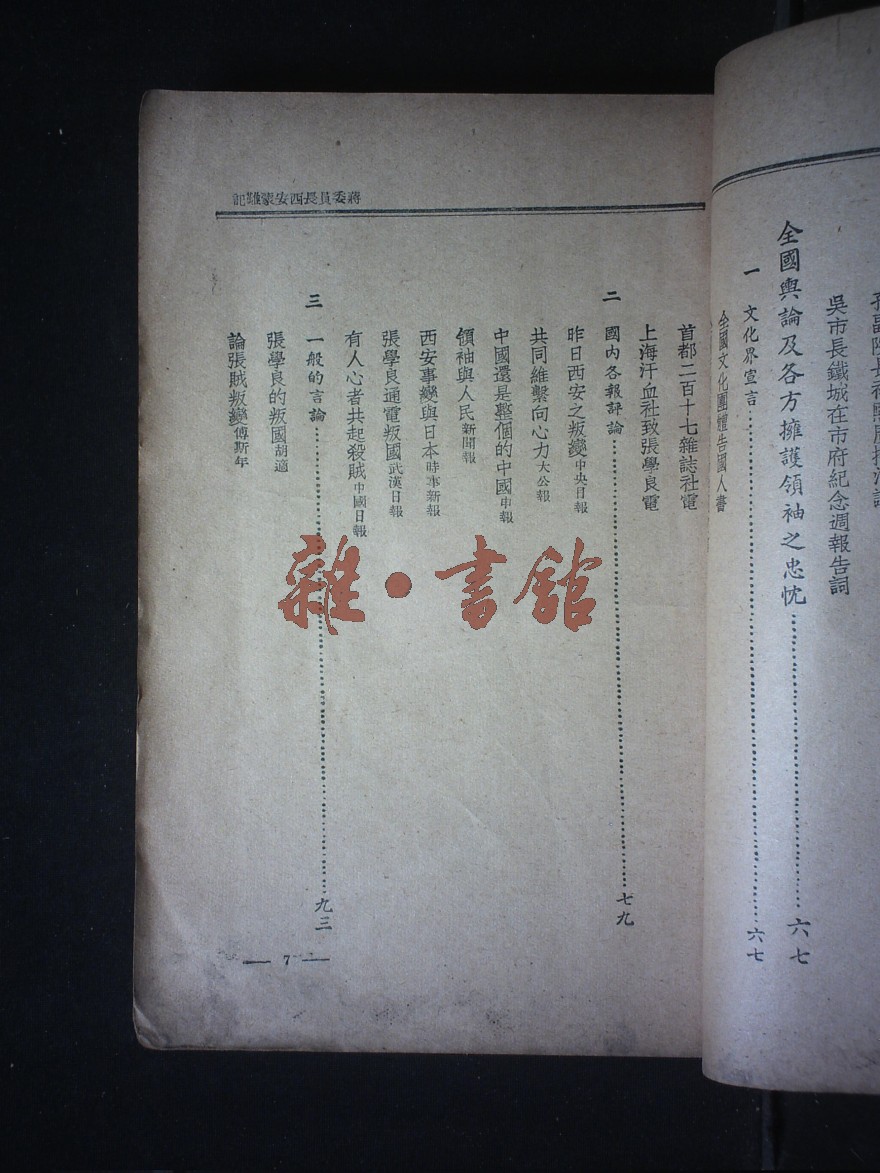 吳市長鐵城在市府紀念週報告詞
全國輿論及各方擁護領袖之忠忱……六七
一 文化界宣言……六七
全國文化團體告國人書
蔣委員長西安蒙難記
首都二百十七雜誌社電
上海汗血社致張學良電
二 國內各報評論……七九
昨日西安之叛變中央日報
共同維繫向心力大公報
中國還是整個的中國申報
領袖與人民新聞報
西安事變與日本時事新報
張學良通電叛國武漢日報
有人心者共起殺賊中國日報
三 一般的言論……九三
張學良的叛國胡適
論張賊叛變傅斯年
— 7 —
雜·書館